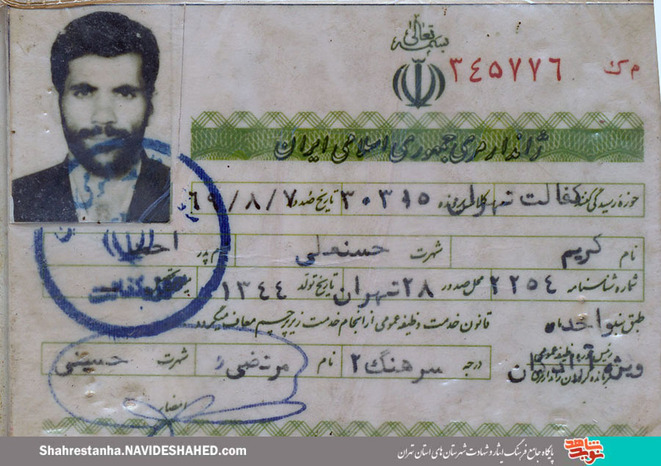 بسمه تعالی
م ک ۳۴۵۷۷۶
ژاندارمری جمهوری اسلامی ایران
حوزه رسیدگی کننده کفالت تهران کلاسه پرونده ۳۰۳۱۵ تاریخ صدور ۶۹/۸/۷
نام کریم شهرت حسنعلی نام پدر
شماره شناسنامه ۲۲۵۴ محل صدور ۲۸ تهران تاریخ تولد ۱۳۴۴
طبق بند واحده قانون خدمت وظیفه عمومی از انجام خدمت زیر پرچم معاف میگردد
رئیس اداره وظیفه عمومی
ویژه
درجه سرهنگ ۲ نام مرتضی شهرت حسینی
امضاء
Shahrestanha.NAVIDESHAHED.com
پایگاه جامع فرهنگ ایثار و شهادت شهرستان های استان تهران
نوید شاهد